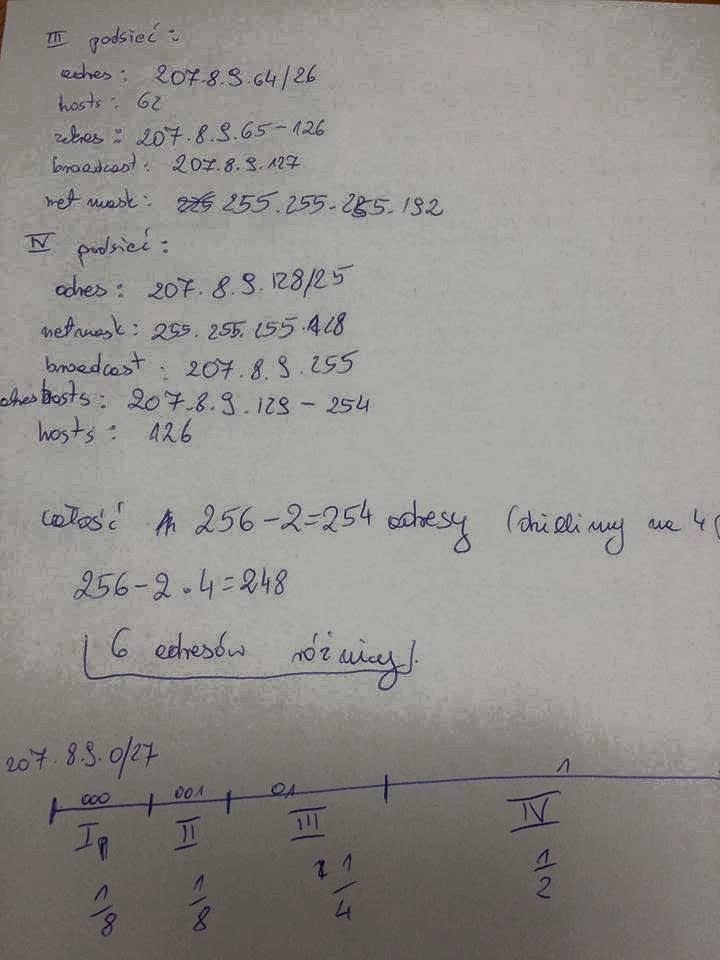 III podsieć :
adres : 207.8.9.64/26
hosts : 62
zakres : 207.8.9.65-126
broadcast : 207.8.9.127
net mask : 255.255.255.192
IV podsieć :
adres : 207.8.9.128/25
netmask : 255.255.255.128
broadcast : 207.8.9.255
adres hosts : 207.8.9.129 - 254
hosts : 126
całość 256-2=254 adresy (dzielimy na 4
256-2·4=248
6 adresów różnicy
207.8.9.0/27
000 001 01 1
I II III IV
1/8 1/8 1/4 1/2